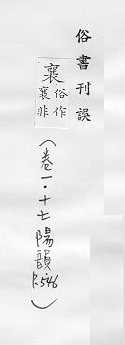 俗書刊誤
襄
俗作
襄非
（卷一·十七陽韻P.546）